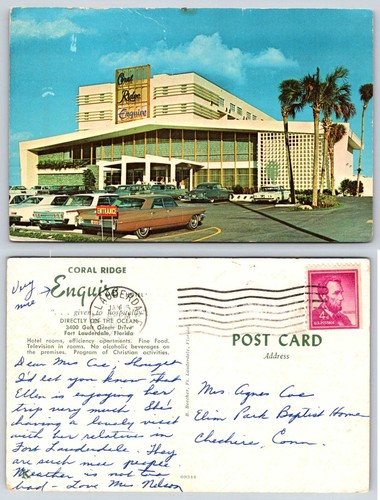 Coral
Ridge
Enquire
ENTRANCE
CORAL RIDGE
Very nice →
Enquire
given to hospitality
DIRECTLY ON THE OCEAN
3400 Galt Ocean Drive
Fort Lauderdale, Florida
Hotel rooms, efficiency apartments. Fine Food.
Television in rooms. No alcoholic beverages on
the premises. Program of Christian activities.
LAUDERDALE
Dear Mrs Coe, thought
I'd let you know that
Ellen is enjoying her
trip very much. She's
having a lovely visit
with her relatives in
Fort Lauderdale. They
are such nice people.
Weather is not too
bad - Love Mrs. Nelson
4¢
U.S. POSTAGE
POST CARD
Address
Mrs Agnes Coe
Elim Park Baptist Home
Cheshire, Conn.